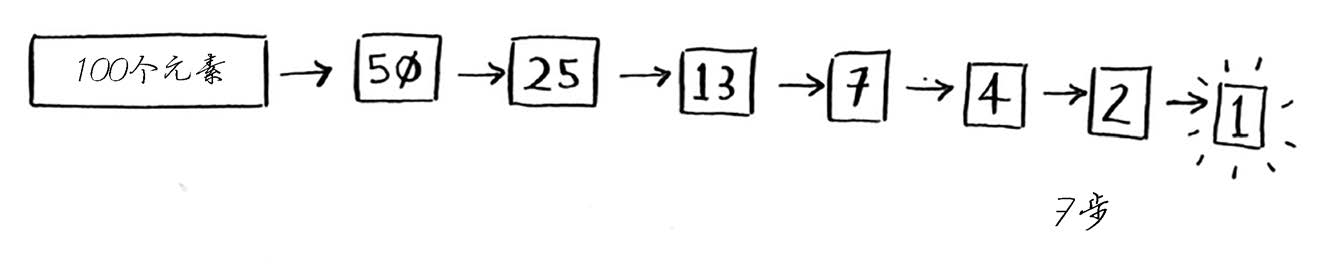 100个元素 → 50 → 25 → 13 → 7 → 4 → 2 → 1
7步